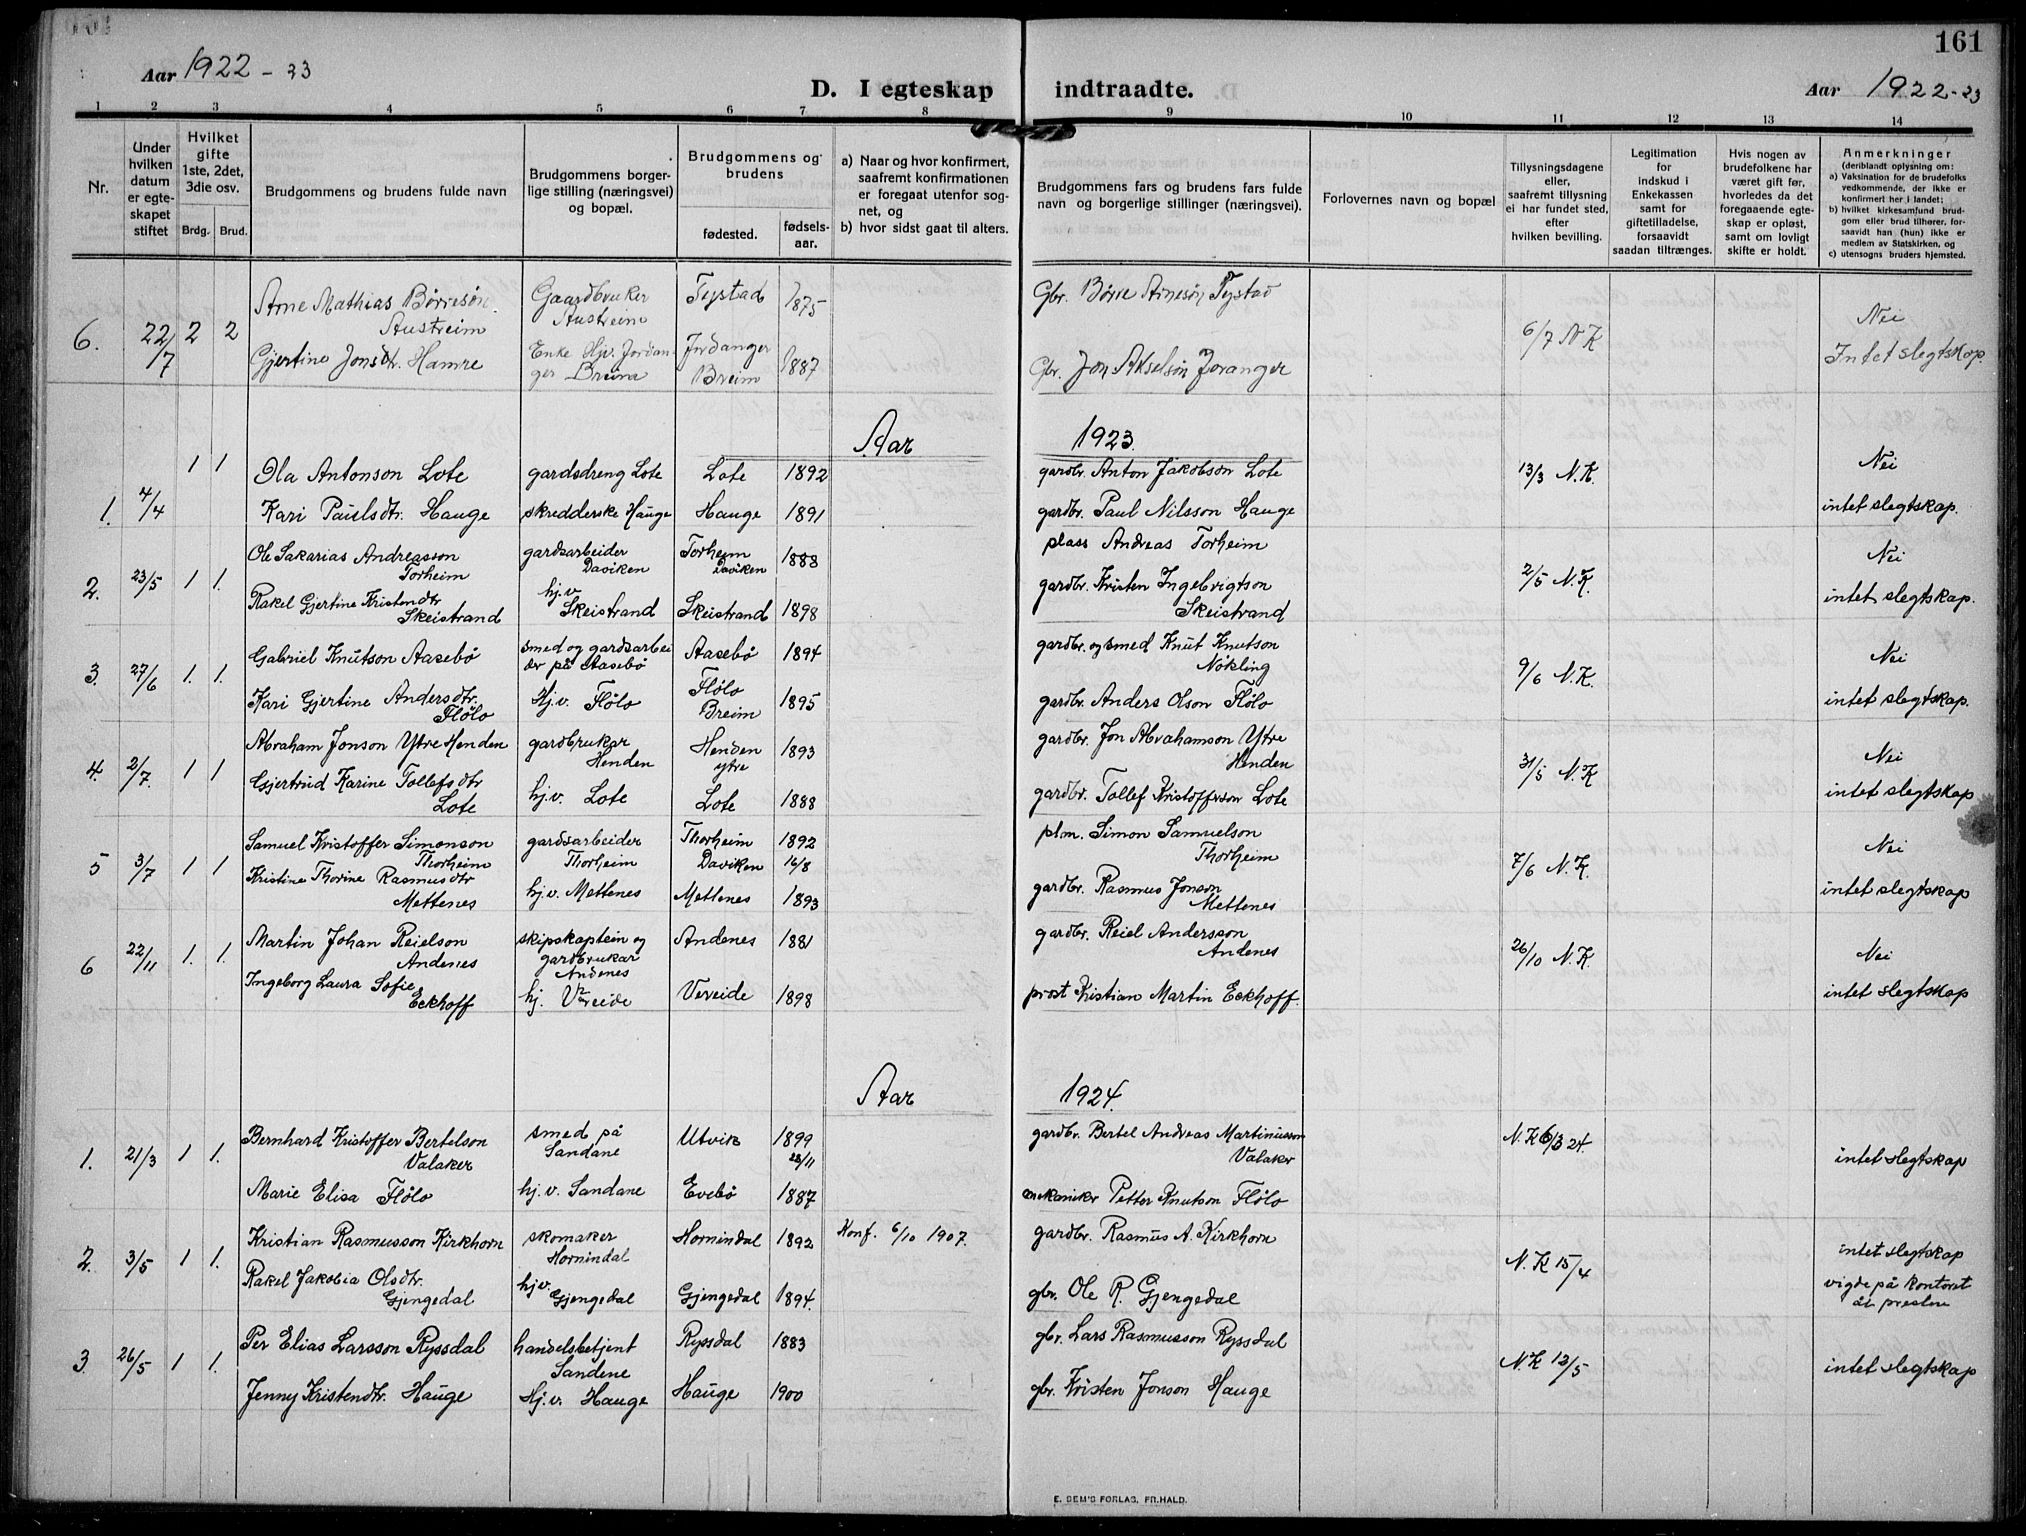 161
Aar 1922 - 23
D. I egteskap indtraadte.
Aar 1922-23
1 2 3 4 5 6 7 8 9 10 11 12 13 14
Nr.
Under
hvilken
datum
er egte-
skapet
stiftet
Hvilket
gifte
1ste, 2det,
3die osv.
Brdg. Brud.
Brudgommens og brudens fulde navn
Brudgommens borger-
lige stilling (næringsvei)
og bopæl.
Brudgommens og
brudens
fødested.
fødsels-
aar.
a) Naar og hvor konfirmert,
saafremt konfirmationen
er foregaat utenfor sog-
net, og
b) hvor sidst gaat til alters.
Brudgommens fars og brudens fars fulde
navn og borgerlige stillinger (næringsvei).
Forlovernes navn og bopæl
Tillysningsdagene
eller,
saafremt tillysning
ei har fundet sted,
efter
hvilken bevilling.
Legitimation
for
indskud i
Enkekassen
samt for
giftetilladelse,
forsaavidt
saadan tiltrænges.
Hvis nogen av
brudefolkene har
været gift før,
hvorledes da det
foregaaende egte-
skap er opløst,
samt om lovligt
skifte er holdt.
Anmerkninger
(deriblandt oplysning om:
a) Vaksination for de brudefolks
vedkommende, der ikke er
konfirmert her i landet;
b) hvilket kirkesamfund brud-
gom eller brud tilhører, for-
saavidt han (hun) ikke er
medlem av Statskirken, og
c) utensogns bruders hjemsted.
6. 22/7 2 2
Arne Mathias Børresøn
Austreim
Gaardbruker
Austreim
Tystad 1875
Gbr. Børre Arnesøn Tystad
6/7 N K
Nei
Gjertine Jonsdtr. Hamre
Enke Hjv. Jordan-
ger Breim
Jordanger
Breim
1887
Gbr. Jon Akselsøn Joranger
Intet slegtskap.
Aar 1923.
1. 4/4 1 1
Ola Antonson Lote gardsdreng Lote Lote 1892 gardbr. Anton Jakobson Lote 13/3 N.K. Nei
Kari Paulsdtr. Hauge skredderske Hauge Hauge 1891 gardbr. Paul Nilsson Hauge intet slegtskap.
2. 23/5 1 1.
Ole Sakarias Andreasson
Torheim
gardsarbeider
Daviken
Torheim
Daviken
1888
plass Andreas Torheim
2/5 N.K.
Nei
Rakel Gjertine Kristendtr
Skeistrand
hj.v.
Skeistrand
Skeistrand 1898
gardbr. Kristen Ingebrigtson
Skeistrand
intet slegtskap.
3. 27/6 1. 1.
Gabriel Knutson Aasebø
smed og gardsarbei
der på Aasebø
Aasebø 1894
gardbr. og smed Knut Knutson
Nøkling
9/6 N.K.
Nei
Kari Gjertine Andersdtr.
Flølo
Hj.v. Flølo
Flølo
Breim
1895
gardbr. Anders Olson Flølo
intet slegtskap.
4. 2/7. 1 1
Abraham Jonson Ytre Henden
gardbrukar
Henden
Henden
ytre
1893
gardbr. Jon Abrahamson Ytre
Henden
31/5 N.K
Nei
Gjertrud Karine Tollefsdtr
Lote
hj.v. Lote
Lote 1888
gardbr. Tollef Kristofferson Lote
intet slegtskap
5 3/7 1 1
Samuel Kristoffer Simonson
Thorheim
gardsarbeider
Thorheim
Thorheim
Daviken
1892
16/8
plm. Simon Samuelson
Thorheim
7/6 N.K.
Nei
Kristine Thorine Rasmusdtr
Mettenes
hj.v. Mettenes
Mettenes 1893
gardbr. Rasmus Jonson
Mettenes
intet slegtskap
6 22/11 1. 1.
Martin Johan Reielson
Andenes
skipskaptein og
gardbrukar
Andenes
Andenes 1881
gardbr. Reiel Andersson
Andenes
26/10 N.K.
Nei
Ingeborg Laura Sofie
Eckhoff
hj. Vereide
Vereide 1898
prost Kristian Martin Eckhoff.
intet slegtskap
Aar 1924.
1. 21/3 1 1.
Bernhard Kristoffer Bertelson
Valaker
smed på
Sandane
Utvik
1899
22/11
gardbr. Bertel Andreas Martinusson
Valaker
N.K 6/3 24.
intet slegtskap
Marie Elisa Flølo hj.v. Sandane Evebø 1887 mekaniker Petter Knutson Flølo
2. 3/5 1 1.
Kristian Rasmusson Kirkhorn
skomaker
Hornindal
Hornindal 1892
Konf. 6/10 1907.
gardbr. Rasmus A. Kirkhorn
N.K 15/4
intet slegtskap
vigde på kontoret
åt presten
Rakel Jakobia Olsdtr.
Gjengedal
hjv.
Gjengedal
Gjengedal 1894.
gbr. Ole R. Gjengedal
3 26/5 1 1.
Per Elias Larsson Ryssdal
handelsbetjent
Sandene
Ryssdal 1883
gbr. Lars Rasmusson Ryssdal
N.K 12/5
intet slegtskap
Jenny Kristendtr. Hauge Hj.v. Hauge Hauge 1900 gbr. Kristen Jonson Hauge
E. SEM'S FORLAG, FR.HALD.